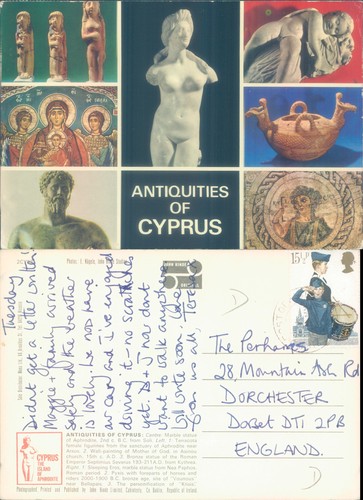 ANTIQUITIES
OF
CYPRUS
Tuesday
Didn't get a letter written
Maggie & family arrived
safely and the weather
is lovely. We now have
our car and I've enjoyed
driving it - no scratches
yet. D + J nor don't
want to talk anymore
Will write soon. Love
from us all,
15½P
The Perhams
28, Mountain Ash Rd
DORCHESTER
Dorset DT1 2PB
ENGLAND.
CYPRUS
THE
ISLAND
OF
APHRODITE
ANTIQUITIES OF CYPRUS: Centre: Marble statue
of Aphrodite, 2nd c. B.C. from Soli. Left: 1. Terracotta
female figurines from the sanctuary of Aphrodite near
2. Wall-painting of Mother of God, in Asinou
church, 15th c. A.D. 3. Bronze statue of the Roman
Emperor Septimius Severus 193-211 A.D. from Kythrea.
Right: 1. Sleeping Eros, marble statue from Nea Paphos,
Roman period. 2. Pyxis with foreparts of horses and
riders 2000-1900 B.C. bronze age, site of "Vounous"
near Bellapais. 3. The personification of
Photographed Printed and Published by John Hinde Limited Cabinteely, Co. Dublin, Republic of Ireland